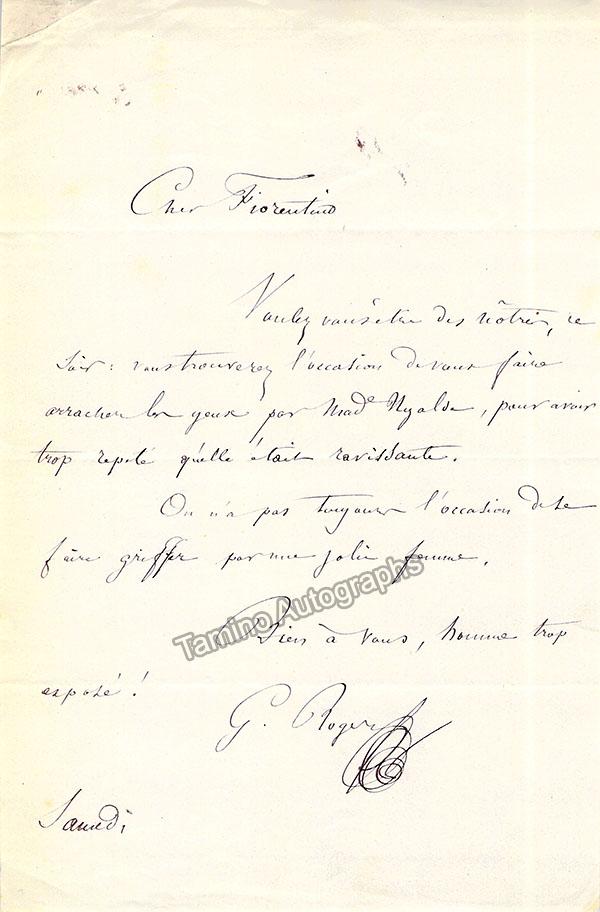 Cher Fiorentino
Voulez vous être des nôtres, ce
soir : vous trouverez l'occasion de vous faire
arracher les yeux par Made Ugalde, pour avoir
trop repété qu'elle était ravissante.
On n'a pas toujours l'occasion de se
faire griffer par une jolie femme.
Tamino Autographs
Bien à vous, homme trop
exposé !
G. Roger
Samedi